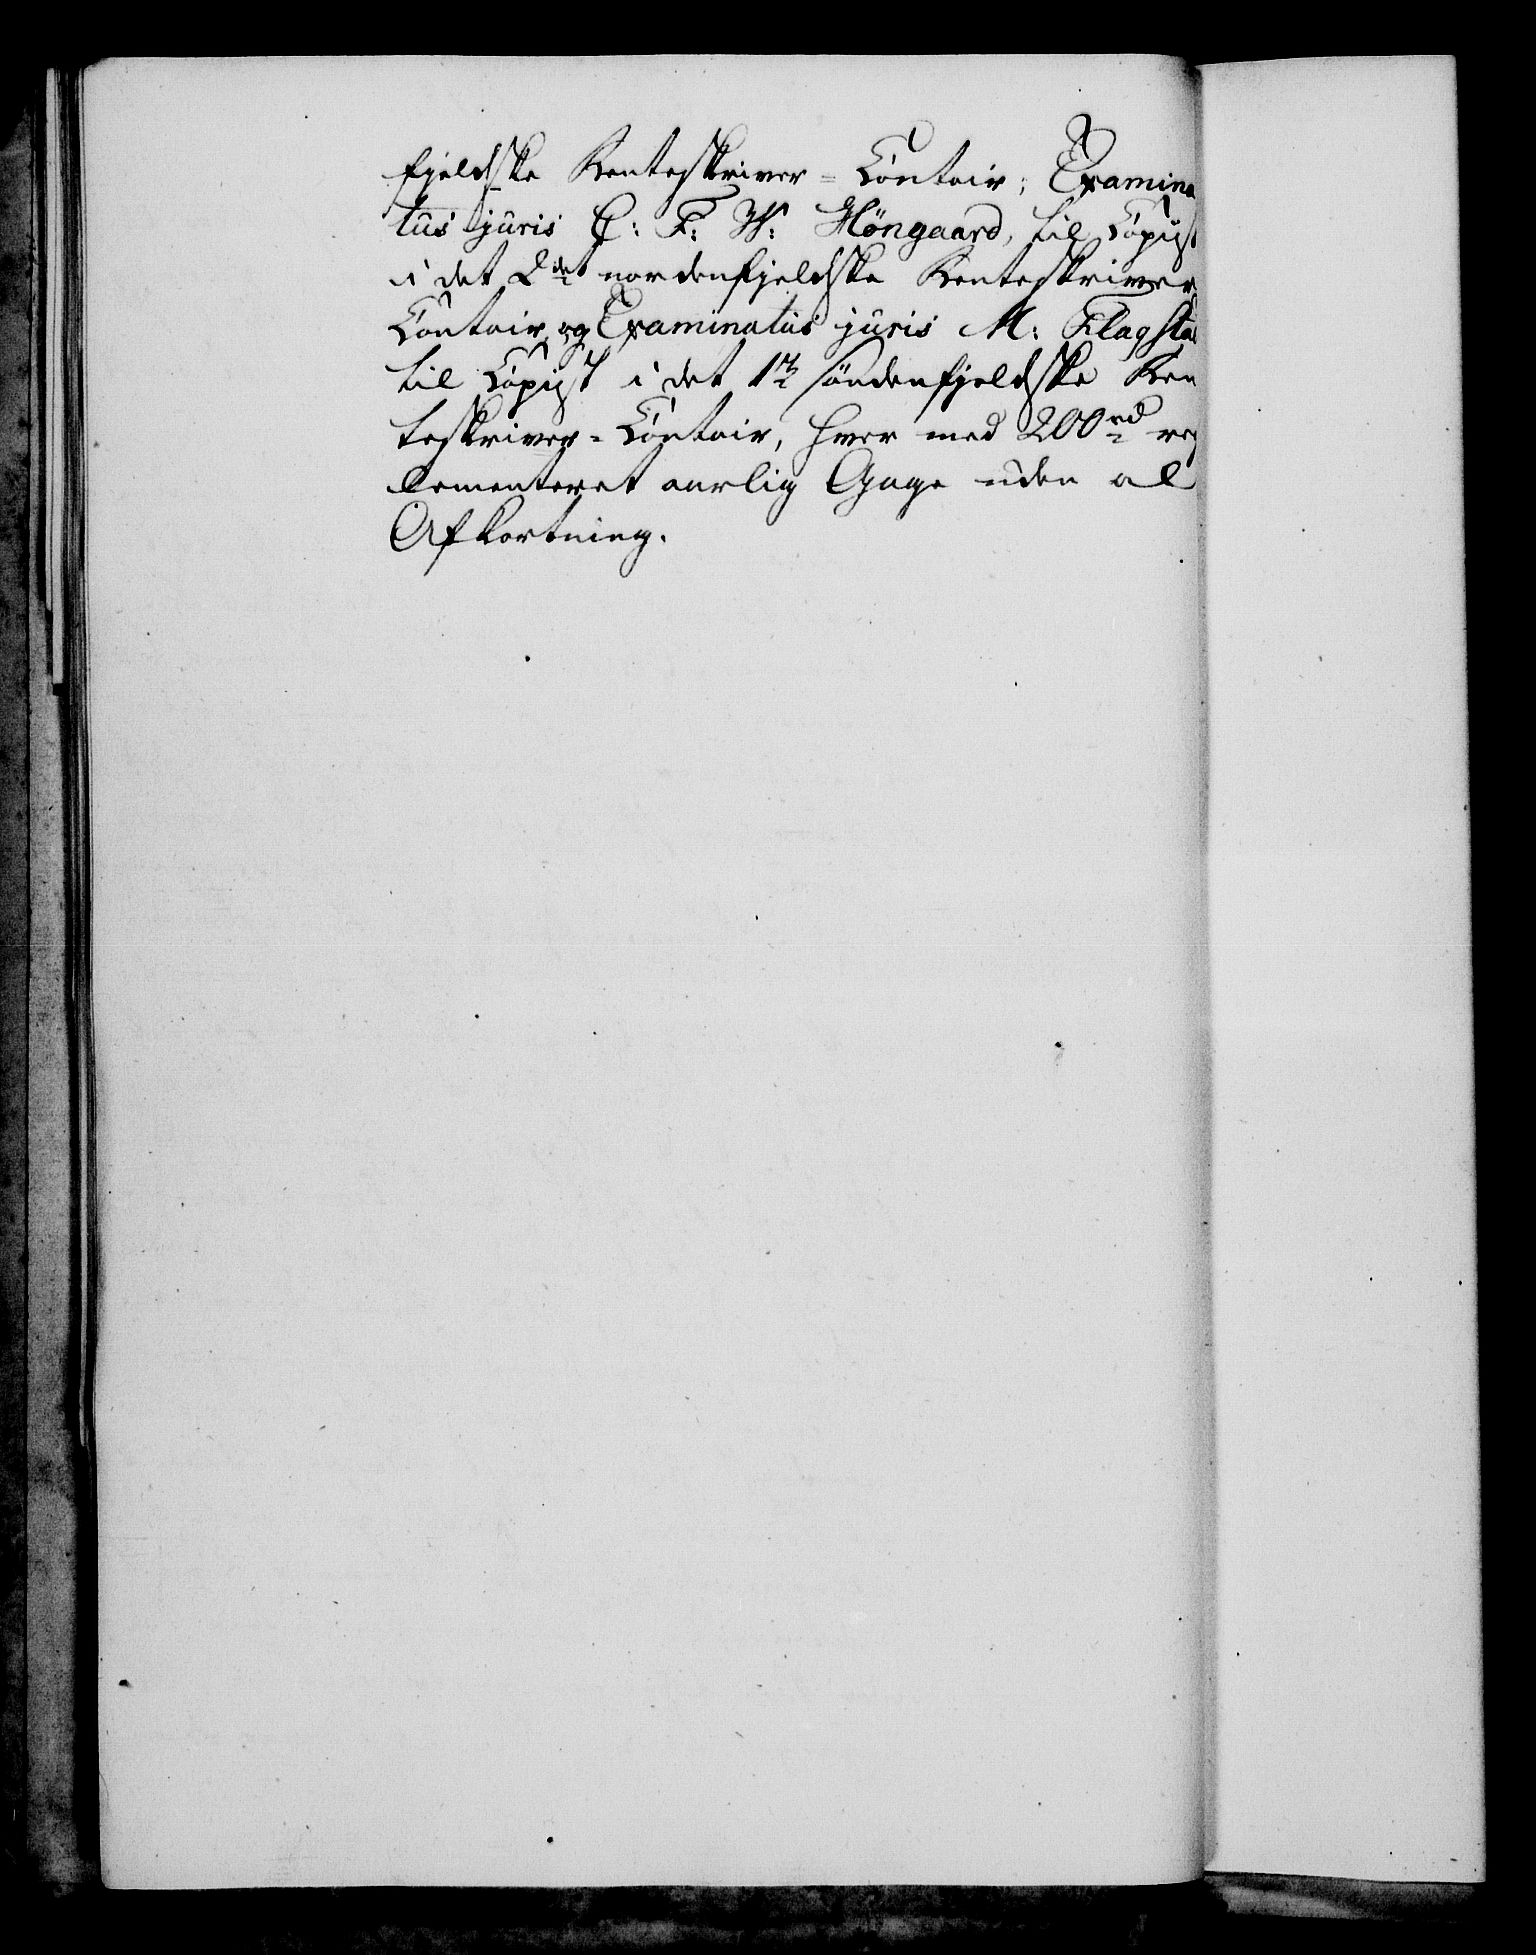 fjeldske Renteskriver-Contoir; Examina
tus juris C: F: W: Höngaard, til Copist
i det 2det nordenfjeldske Renteskriver
Contoir, og Examinatus juris M: Flagsta
til Copist i det 1te söndenfjeldske Ren
teskriver-Contoir, hver med 200rd reg
lementeret aarlig Gage uden al
Afkortning.